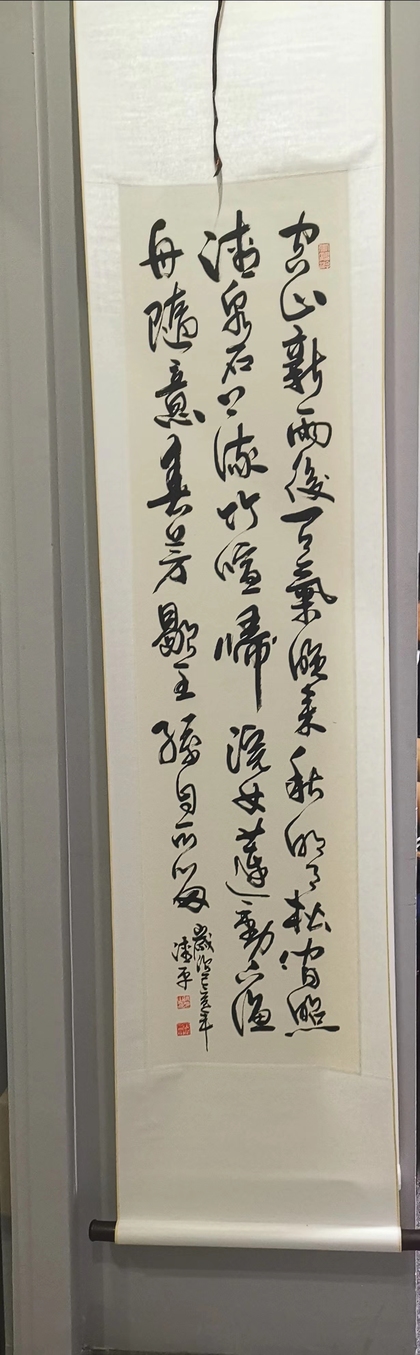 空山新雨後天氣晚來秋明月松間照
清泉石上流竹喧歸浣女蓮動下漁
舟隨意春芳歇王孫自可留
歲次己亥年